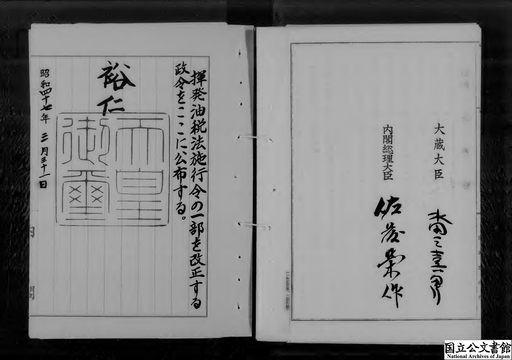 揮発油税法施行令の一部を改正する
政令をここに公布する。
裕仁
天皇
御璽
昭和四十七年三月三十一日
大蔵大臣
内閣総理大臣
佐藤榮作
国立公文書館
National Archives of Japan